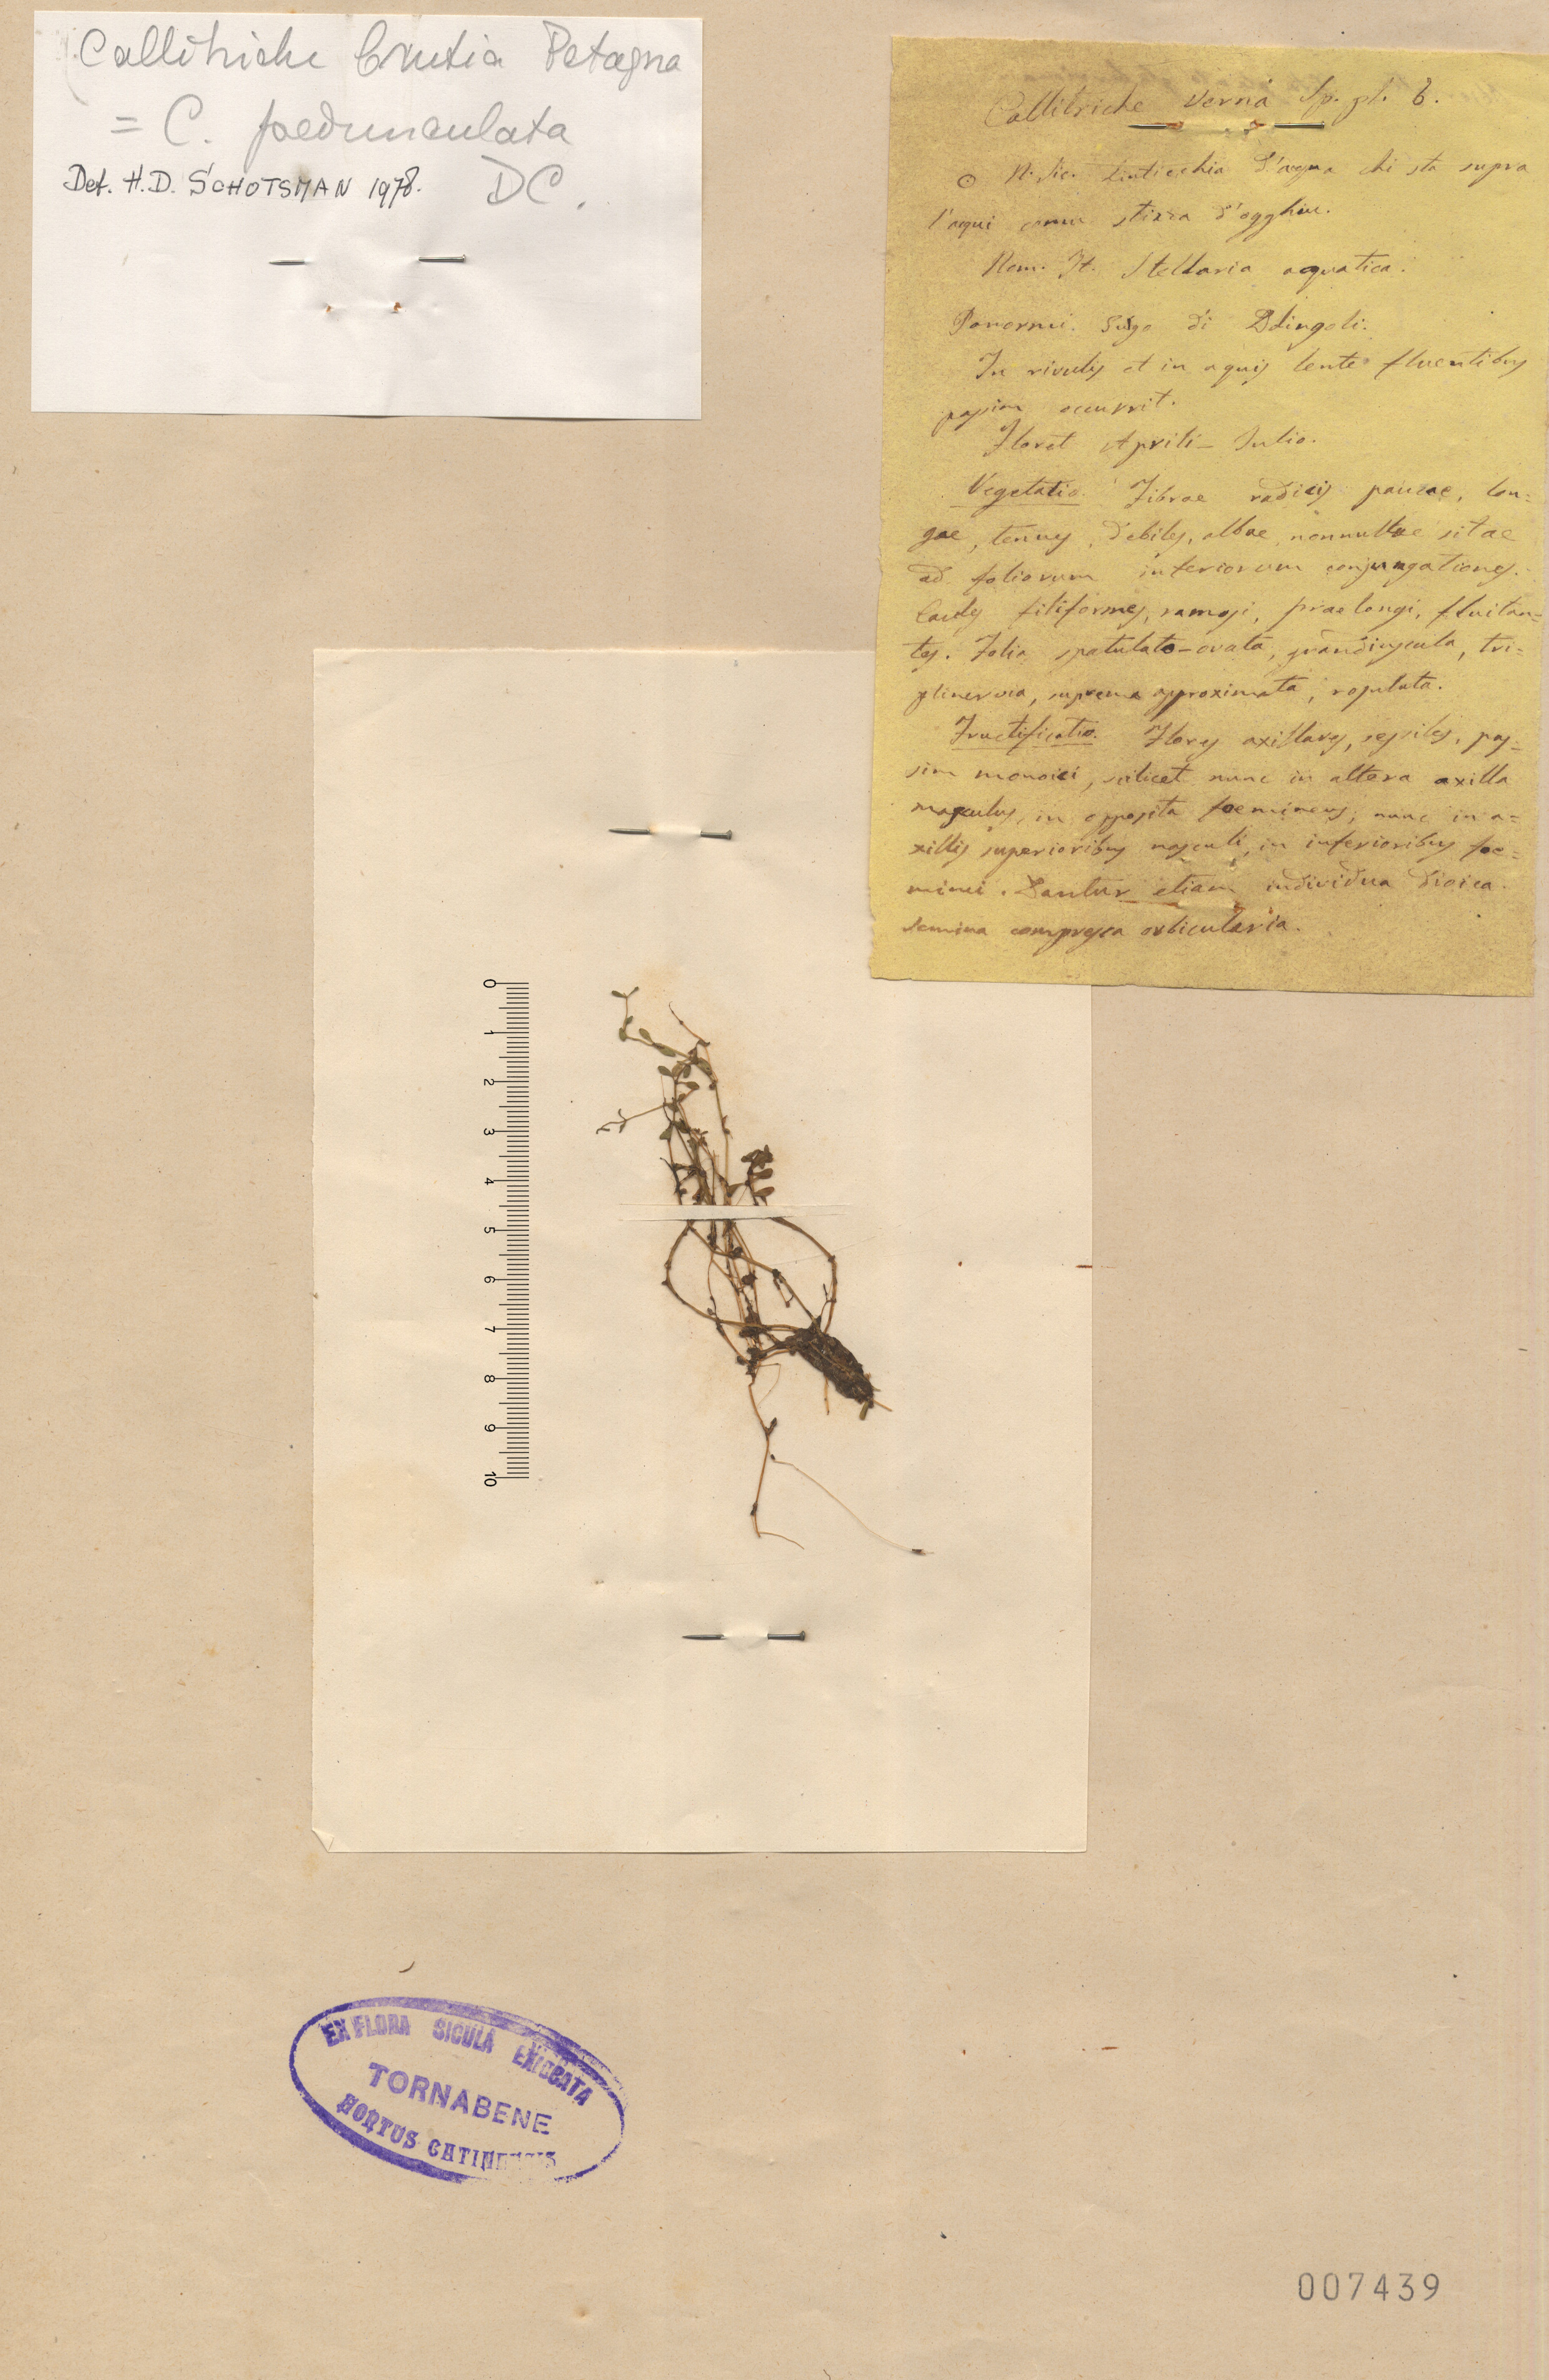 Callitriche brutia Petagna
= C. pedunculata
DC.
Det. H.D. SCHOTSMAN 1978.
Callitriche verna Sp. pl. 6.
☉ N. Sic. Linticchia d'acqua chi sta supra
l'acqui comu stizza d'ogghiu.
Nom. It. Stellaria aquatica.
Panormi. di
In rivulis et in aquis lente fluentibus
passim occurrit.
Floret Aprili – Julio.
Vegetatio. Fibrae radicis paucae, lon=
gae, tenues, debiles, albae, nonnullae sitae
ad foliorum inferiorum conjungationes.
Caules filiformes, ramosi, praelongi, fluitan=
tes. Folia spatulato-ovata, grandiuscula, tri=
plinervia, suprema approximata, rosulata.
Fructificatio. Flores axillares, sessiles, pas=
sim monoici, scilicet nunc in altera axilla
masculus, in opposita foemineus, nunc in a=
xillis superioribus masculi, in inferioribus foe=
minei. Dantur etiam individua dioica.
Semina compressa orbicularia.
0
1
2
3
4
5
6
7
8
9
10
EX FLORA SICULA EXICCATA
TORNABENE
HORTUS CATINENSIS
007439